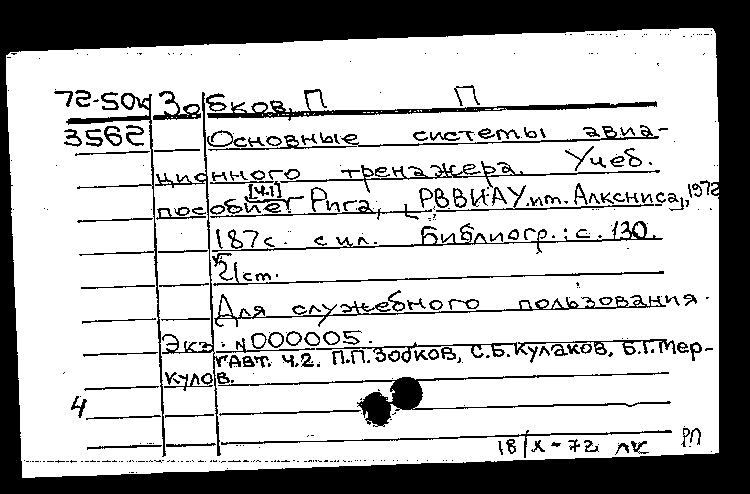 72-50к Зобков, П П
3562 Основные системы авиа-
ционного тренажера. Учеб.
пособие. [Ч.1] Рига, РВВИАУ им. Алксниса, 1972
187с. с ил. Библиогр.: с. 130.
21 ст.
Для служебного пользования.
Экз. №000005.
Авт. ч.2. П.П. Зобков, С.Б. Кулаков, Б.Г. Мер-
кулов.
4
18/X-72 РП